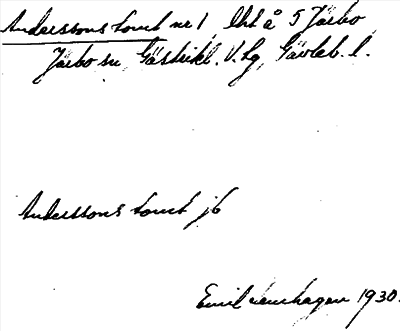 Anderssons tomt nr 1, lht å 5 Järbo
Järbo sn, Gästrikl. V. tg, Gävleb. l.
Anderssons tomt jb
Emil Lenhagen 1930.